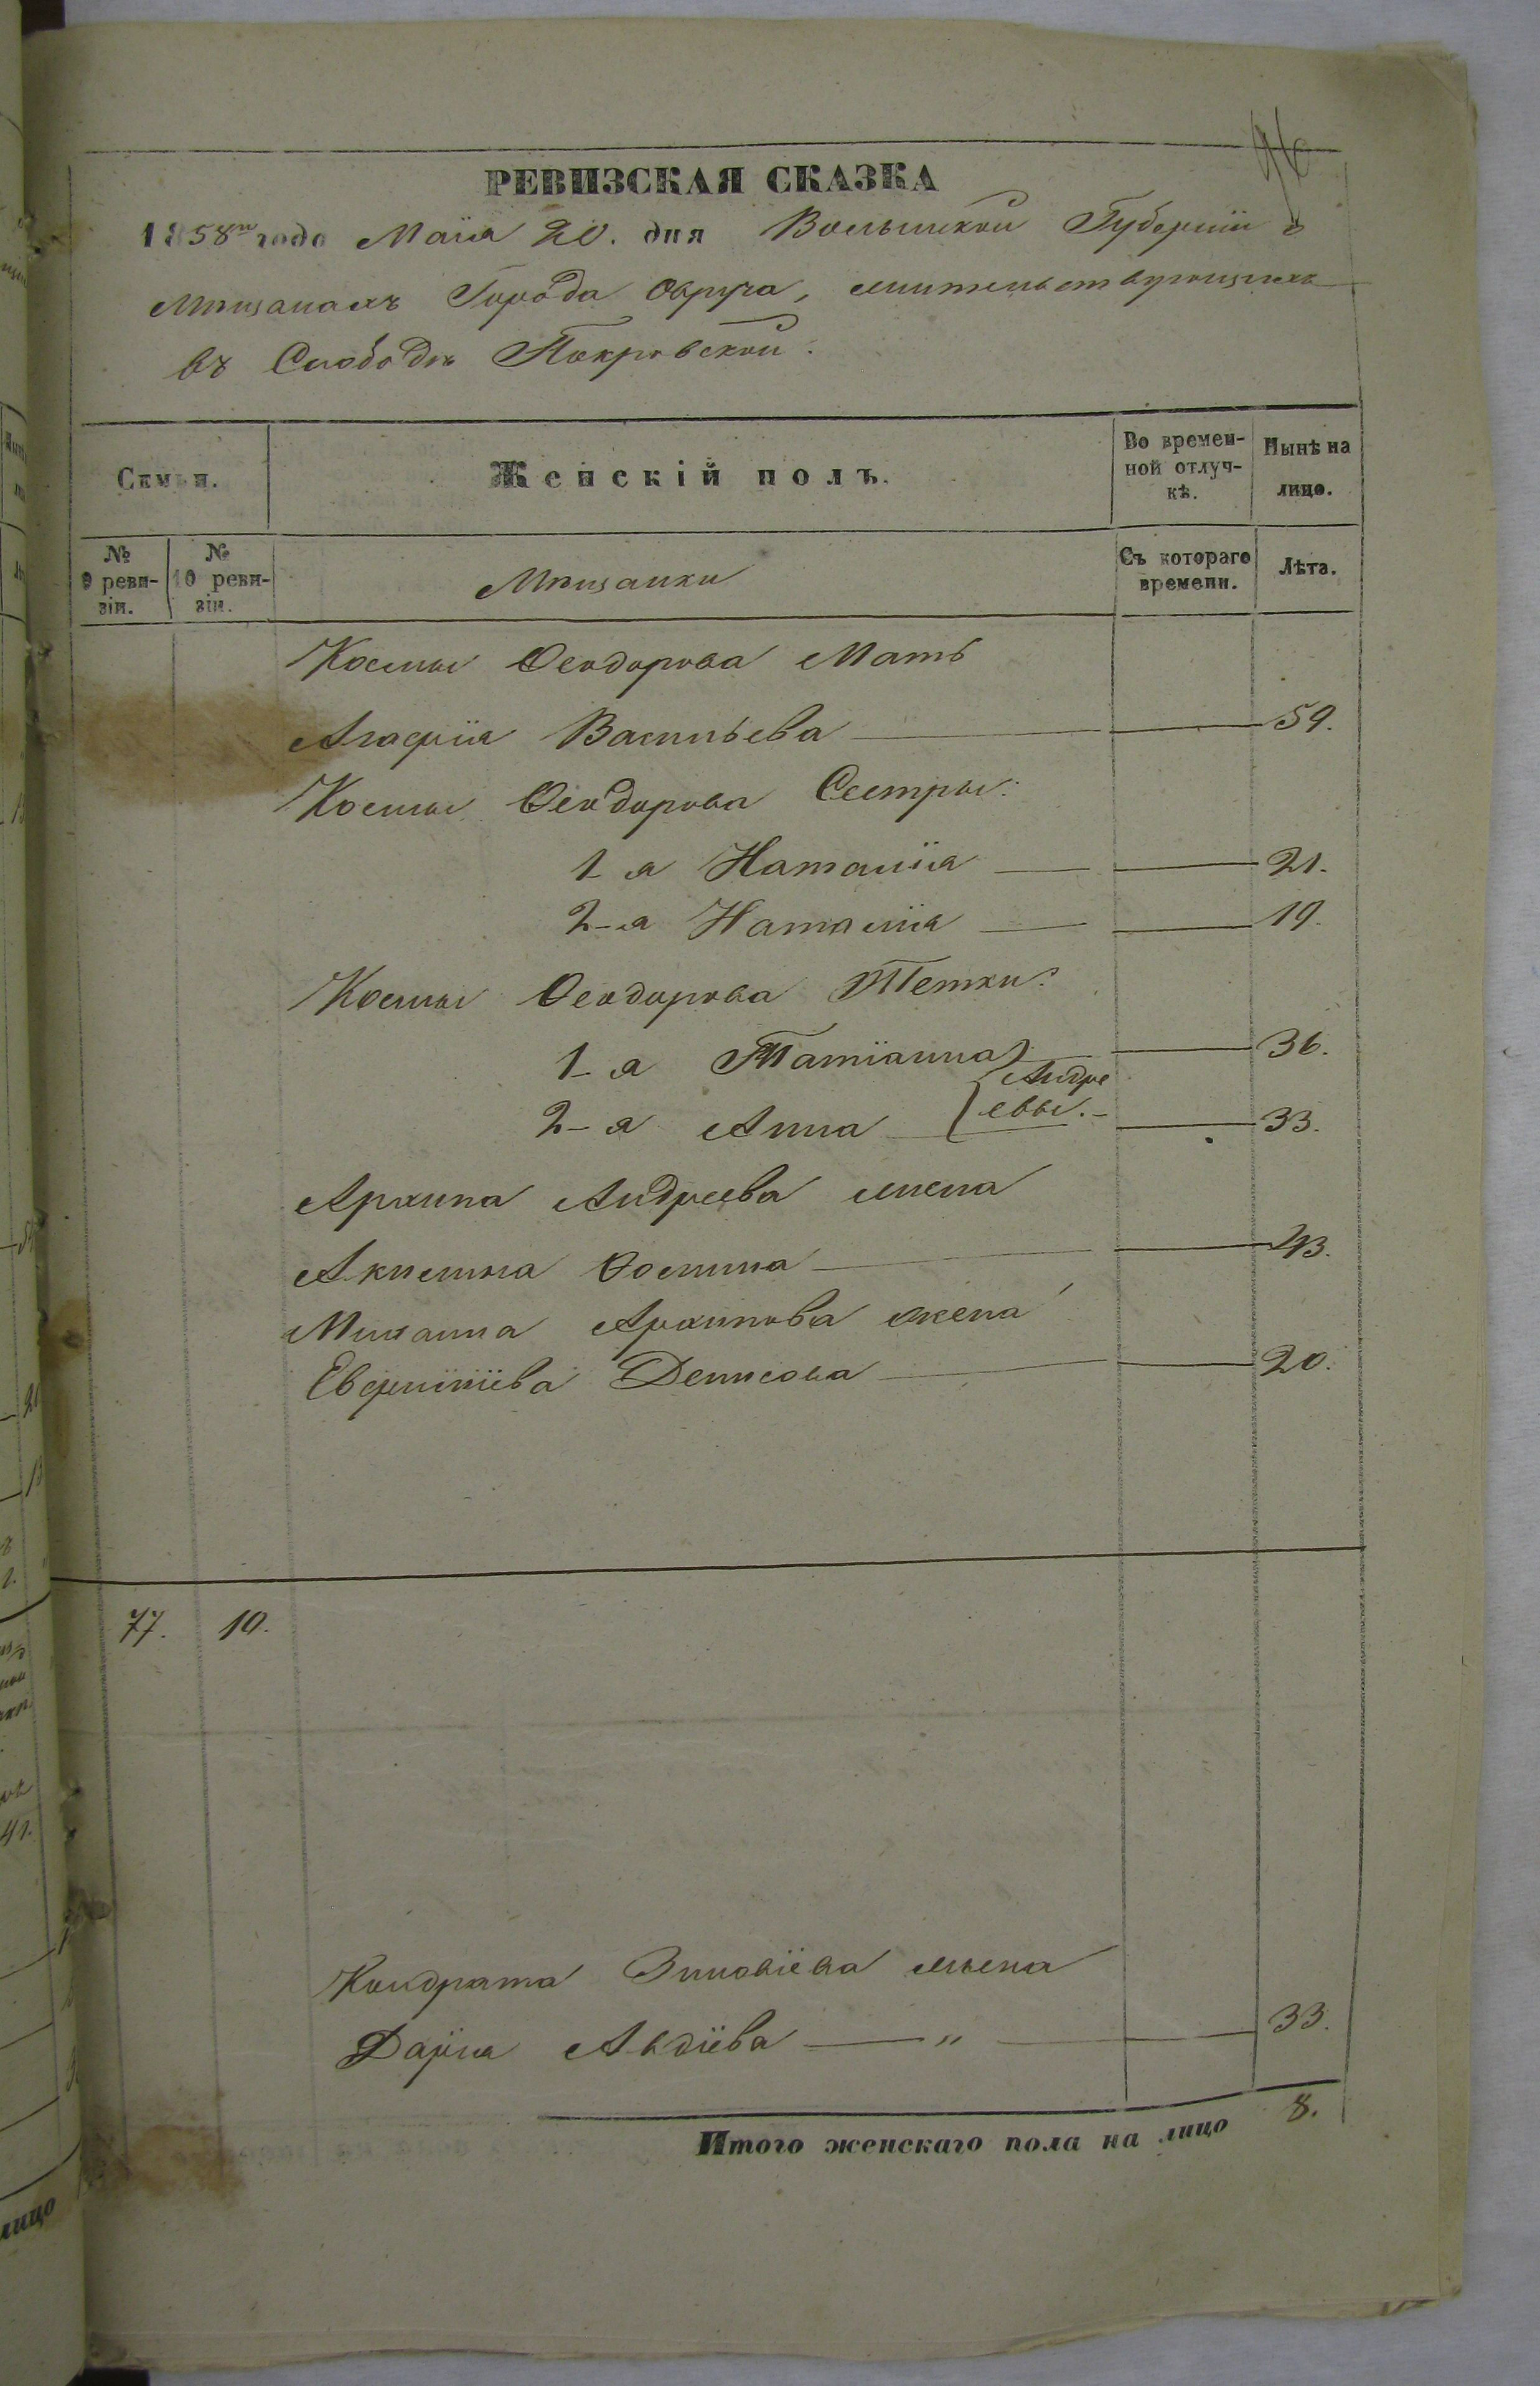 РЕВИЗСКАЯ СКАЗКА
1858го года Маія 20. дня Волынской Губерніи о
мѣщанахъ Города Овруча, жительствующихъ
въ Слободѣ Покровской.
Семьи. Женскій полъ. Во времен-ной отлуч-кѣ. Нынѣ на лицо.
№ 9 реви-зіи. № 10 реви-зіи. Мѣщанки Съ котораго времени. Лѣта.
Космы Ѳеодорова Мать
Агафія Васильева 59.
Космы Ѳеодорова Сестры:
1-я Наталія 21.
2-я Наталія 19.
Космы Ѳеодорова Тетки:
1-я Татіанна 36.
Андре
евы.
2-я Анна 33.
Архипа Андреева жена
Акилина Ѳомина 43.
Михаила Архипова жена
Денисова 20.
77. 10.
Кондрата Зиновіева жена
Дарія Авдіева — „ — 33.
Итого женскаго пола на лицо 8.
лицо